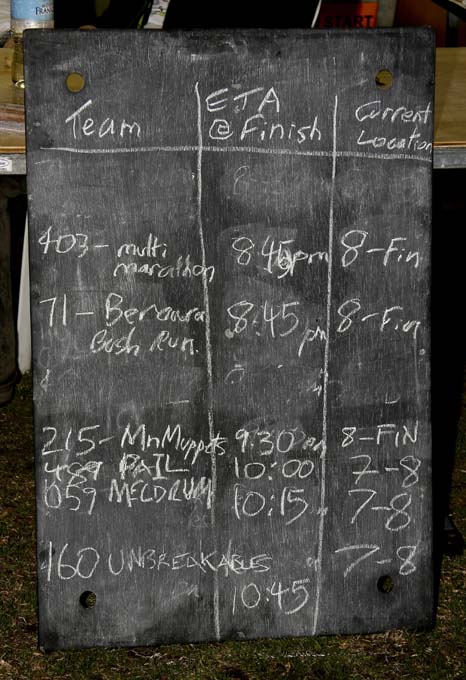 START
Team ETA @ Finish Current Location
403 - multi marathon 8:45pm 8-Fin
71 - Berowra Bush Run. 8:45 pm 8-Fin
215 - MnMuppets 9:30 pm 8-FIN
489 PAIL 10:00 7-8
059 MELDRUM 10:15 7-8
460 UNBREAKABLES 10:45 7-8